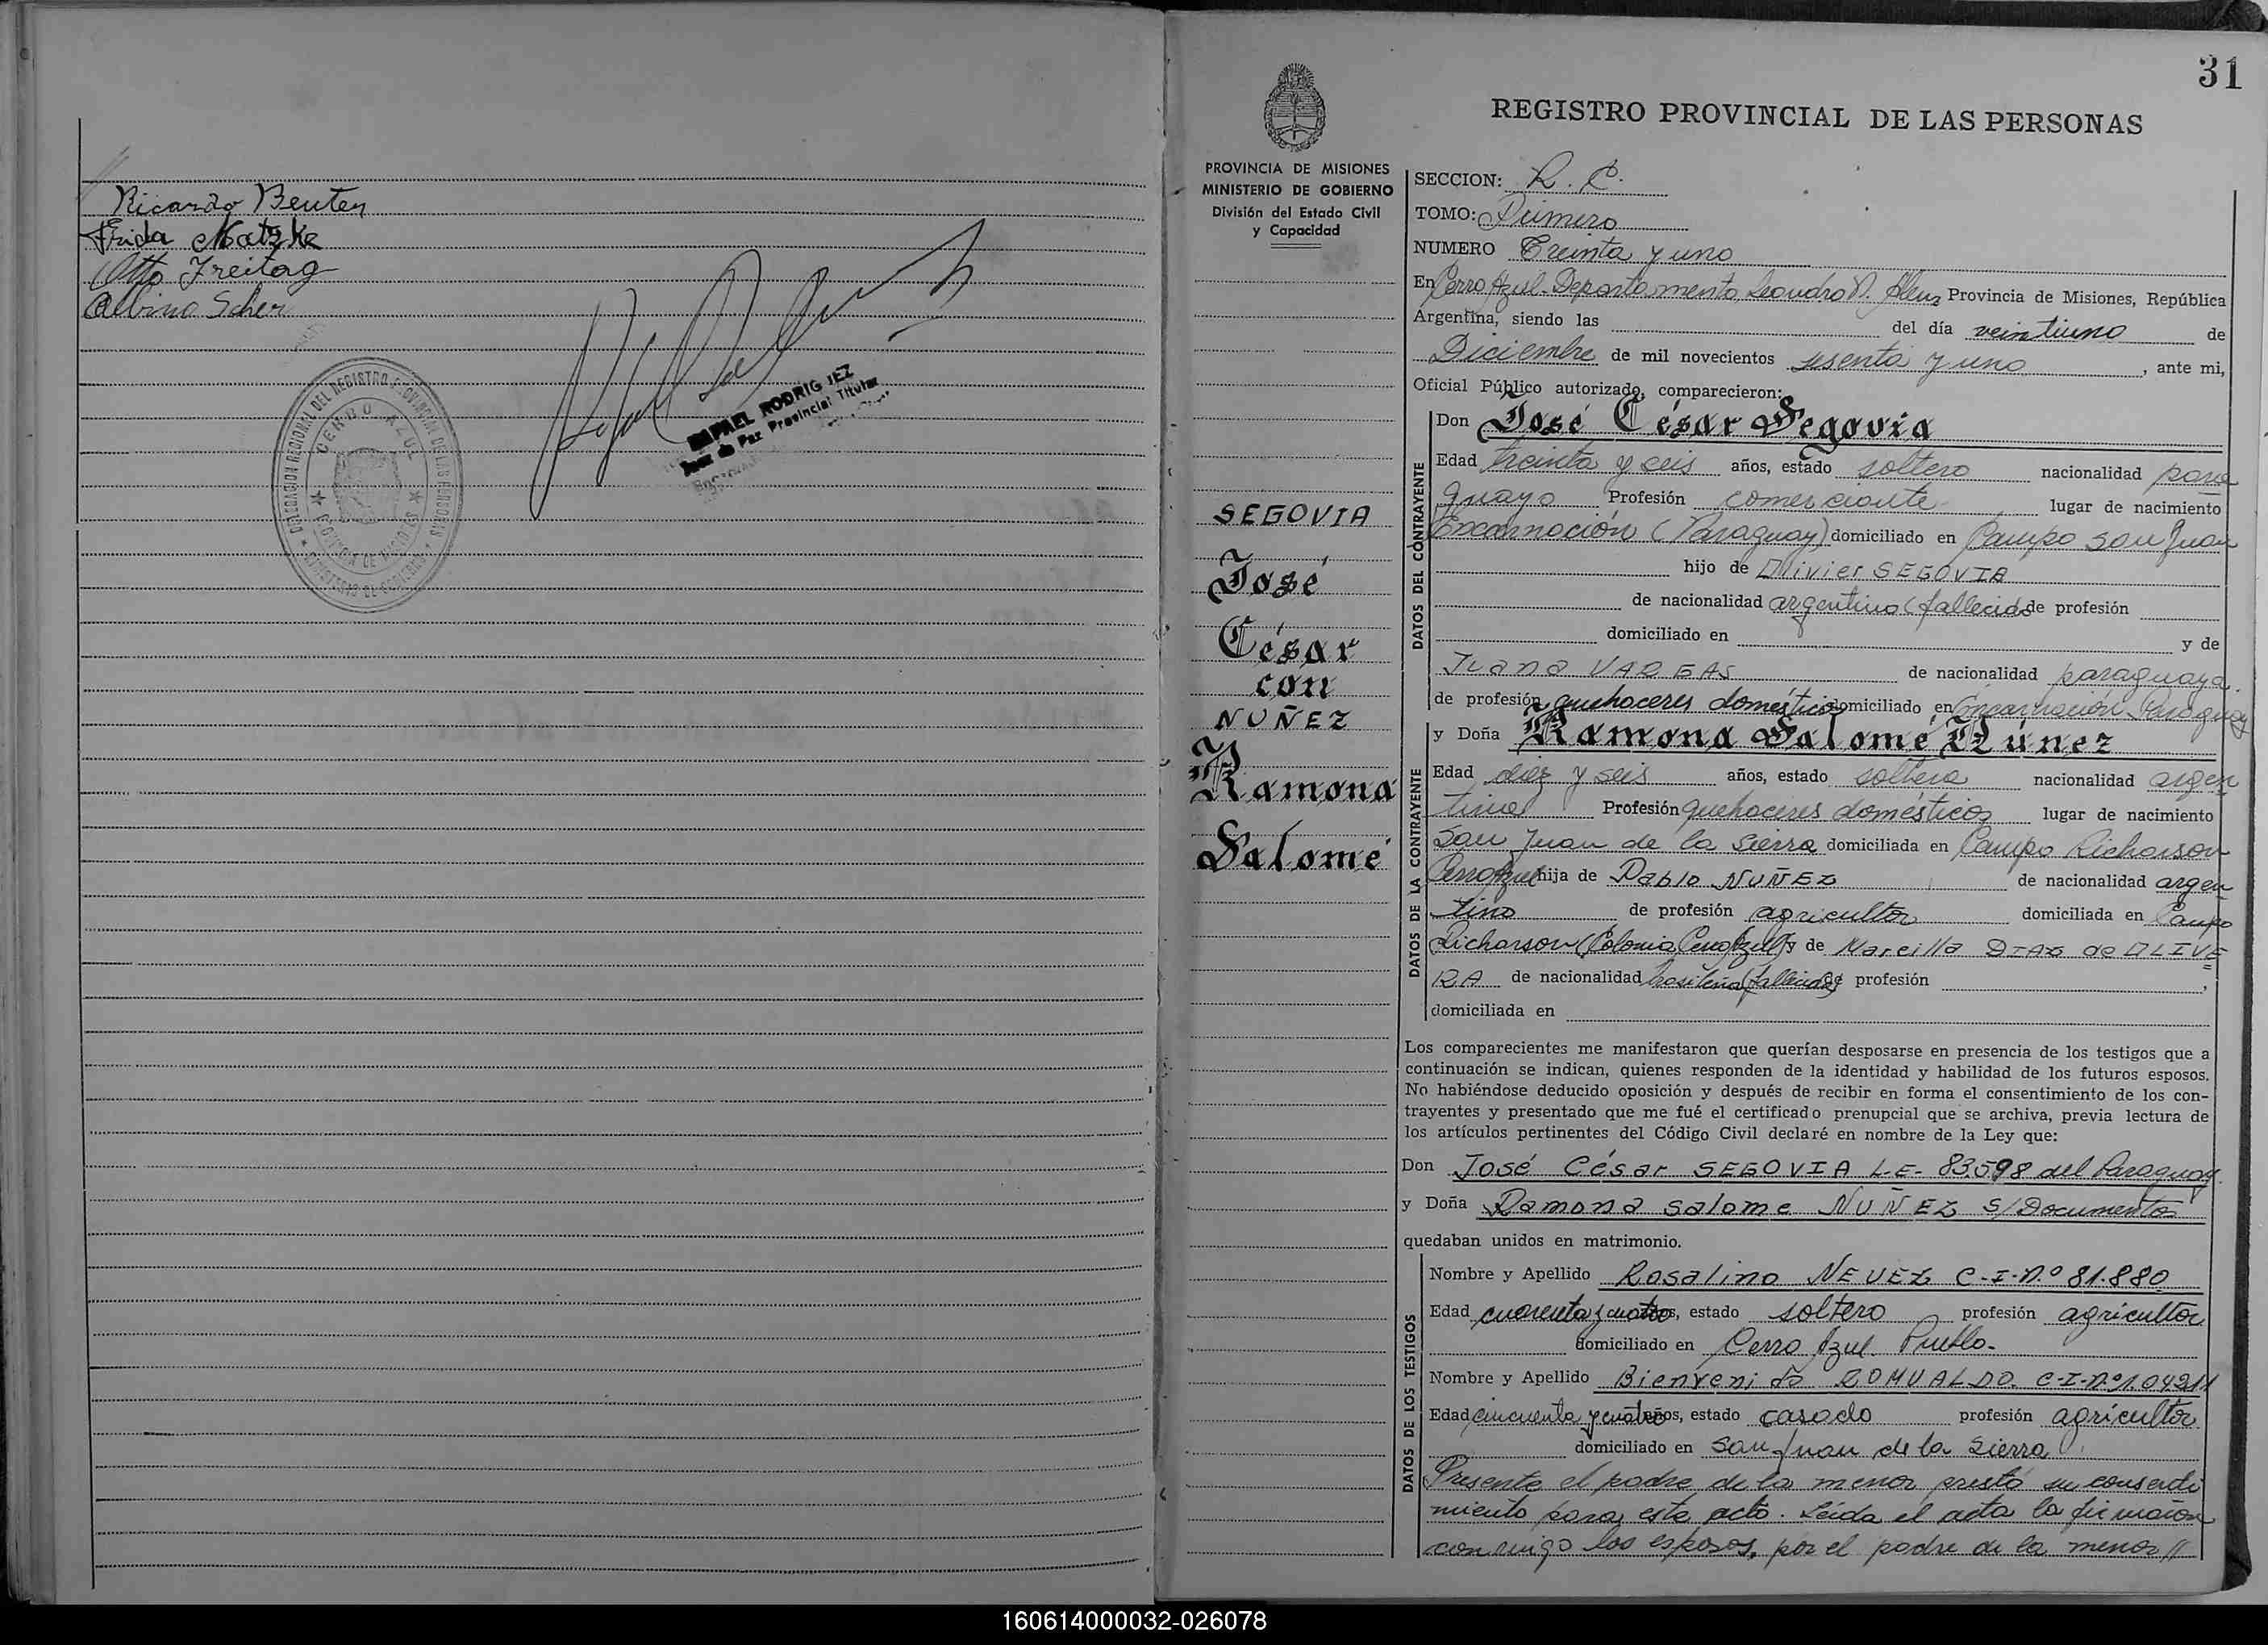 Ricardo Beuter
Frida Matzke
Otto Freitag
Albino Scher
RAFAEL RODRIGUEZ
Juez de Paz Provincial Titular
DELEGACION REGIONAL DEL REGISTRO PROVINCIAL DE LAS PERSONAS
CERRO AZUL
PROVINCIA DE MISIONES
MINISTERIO DE GOBIERNO
31
REGISTRO PROVINCIAL DE LAS PERSONAS
PROVINCIA DE MISIONES
MINISTERIO DE GOBIERNO
División del Estado Civil
y Capacidad
SEGOVIA
José
César
con
NUÑEZ
Ramona
Salomé
SECCION: R. C.
TOMO: Primero
NUMERO Treinta y uno
En Cerro Azul - Departamento Leandro N. Alem Provincia de Misiones, República
Argentina, siendo las del día veintiuno de
Diciembre de mil novecientos sesenta y uno, ante mi,
Oficial Público autorizado, comparecieron:
DATOS DEL CONTRAYENTE
Don José César Segovia
Edad treinta y seis años, estado soltero nacionalidad para
guayo Profesión comerciante lugar de nacimiento
Encarnación (Paraguay) domiciliado en Campo San Juan
hijo de Olivier SEGOVIA
de nacionalidad argentino (fallecido de profesión
domiciliado en y de
Juana VARGAS de nacionalidad paraguaya
de profesión quehaceres domésticos domiciliado en Encarnación Paraguay
DATOS DE LA CONTRAYENTE
y Doña Ramona Salomé Núñez
Edad diez y seis años, estado soltera nacionalidad argen
tina Profesión quehaceres domésticos lugar de nacimiento
San Juan de la Sierra domiciliada en Campo Richarson
Cerro Azul hija de Pablo NUÑEZ de nacionalidad argen
tino de profesión agricultor domiciliada en Campo
Richarson (Colonia Cerro Azul) y de Marcilla DIAS de OLIVE
RA de nacionalidad brasileña (fallecida) de profesión ,
domiciliada en
Los comparecientes me manifestaron que querían desposarse en presencia de los testigos que a
continuación se indican, quienes responden de la identidad y habilidad de los futuros esposos.
No habiéndose deducido oposición y después de recibir en forma el consentimiento de los con-
trayentes y presentado que me fué el certificado prenupcial que se archiva, previa lectura de
los artículos pertinentes del Código Civil declaré en nombre de la Ley que:
Don José César SEGOVIA L-E- 83.598 del Paraguay.
y Doña Ramona Salome NUÑEZ S/Documentos
quedaban unidos en matrimonio.
DATOS DE LOS TESTIGOS
Nombre y Apellido Rosalino NEVEZ C-I-N.º 81.880
Edad cuarenta y cuatro años, estado soltero profesión agricultor
domiciliado en Cerro Azul Pueblo-
Nombre y Apellido Bienvenido ROMUALDO. C-I-N.º
Edad cincuenta y cuatro años, estado casado profesión agricultor
domiciliado en San Juan de la Sierra
Presente el padre de la menor prestó su consenti
miento para este acto. Leída el acta la firmaron
conmigo los esposos, por el padre de la menor //
160614000032-026078